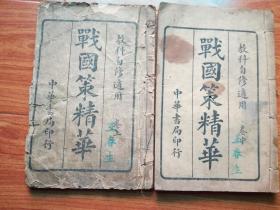 教科自修適用
戰國策精華
中華書局印行
教科自修適用
戰國策精華
卷中
中華書局印行
春生